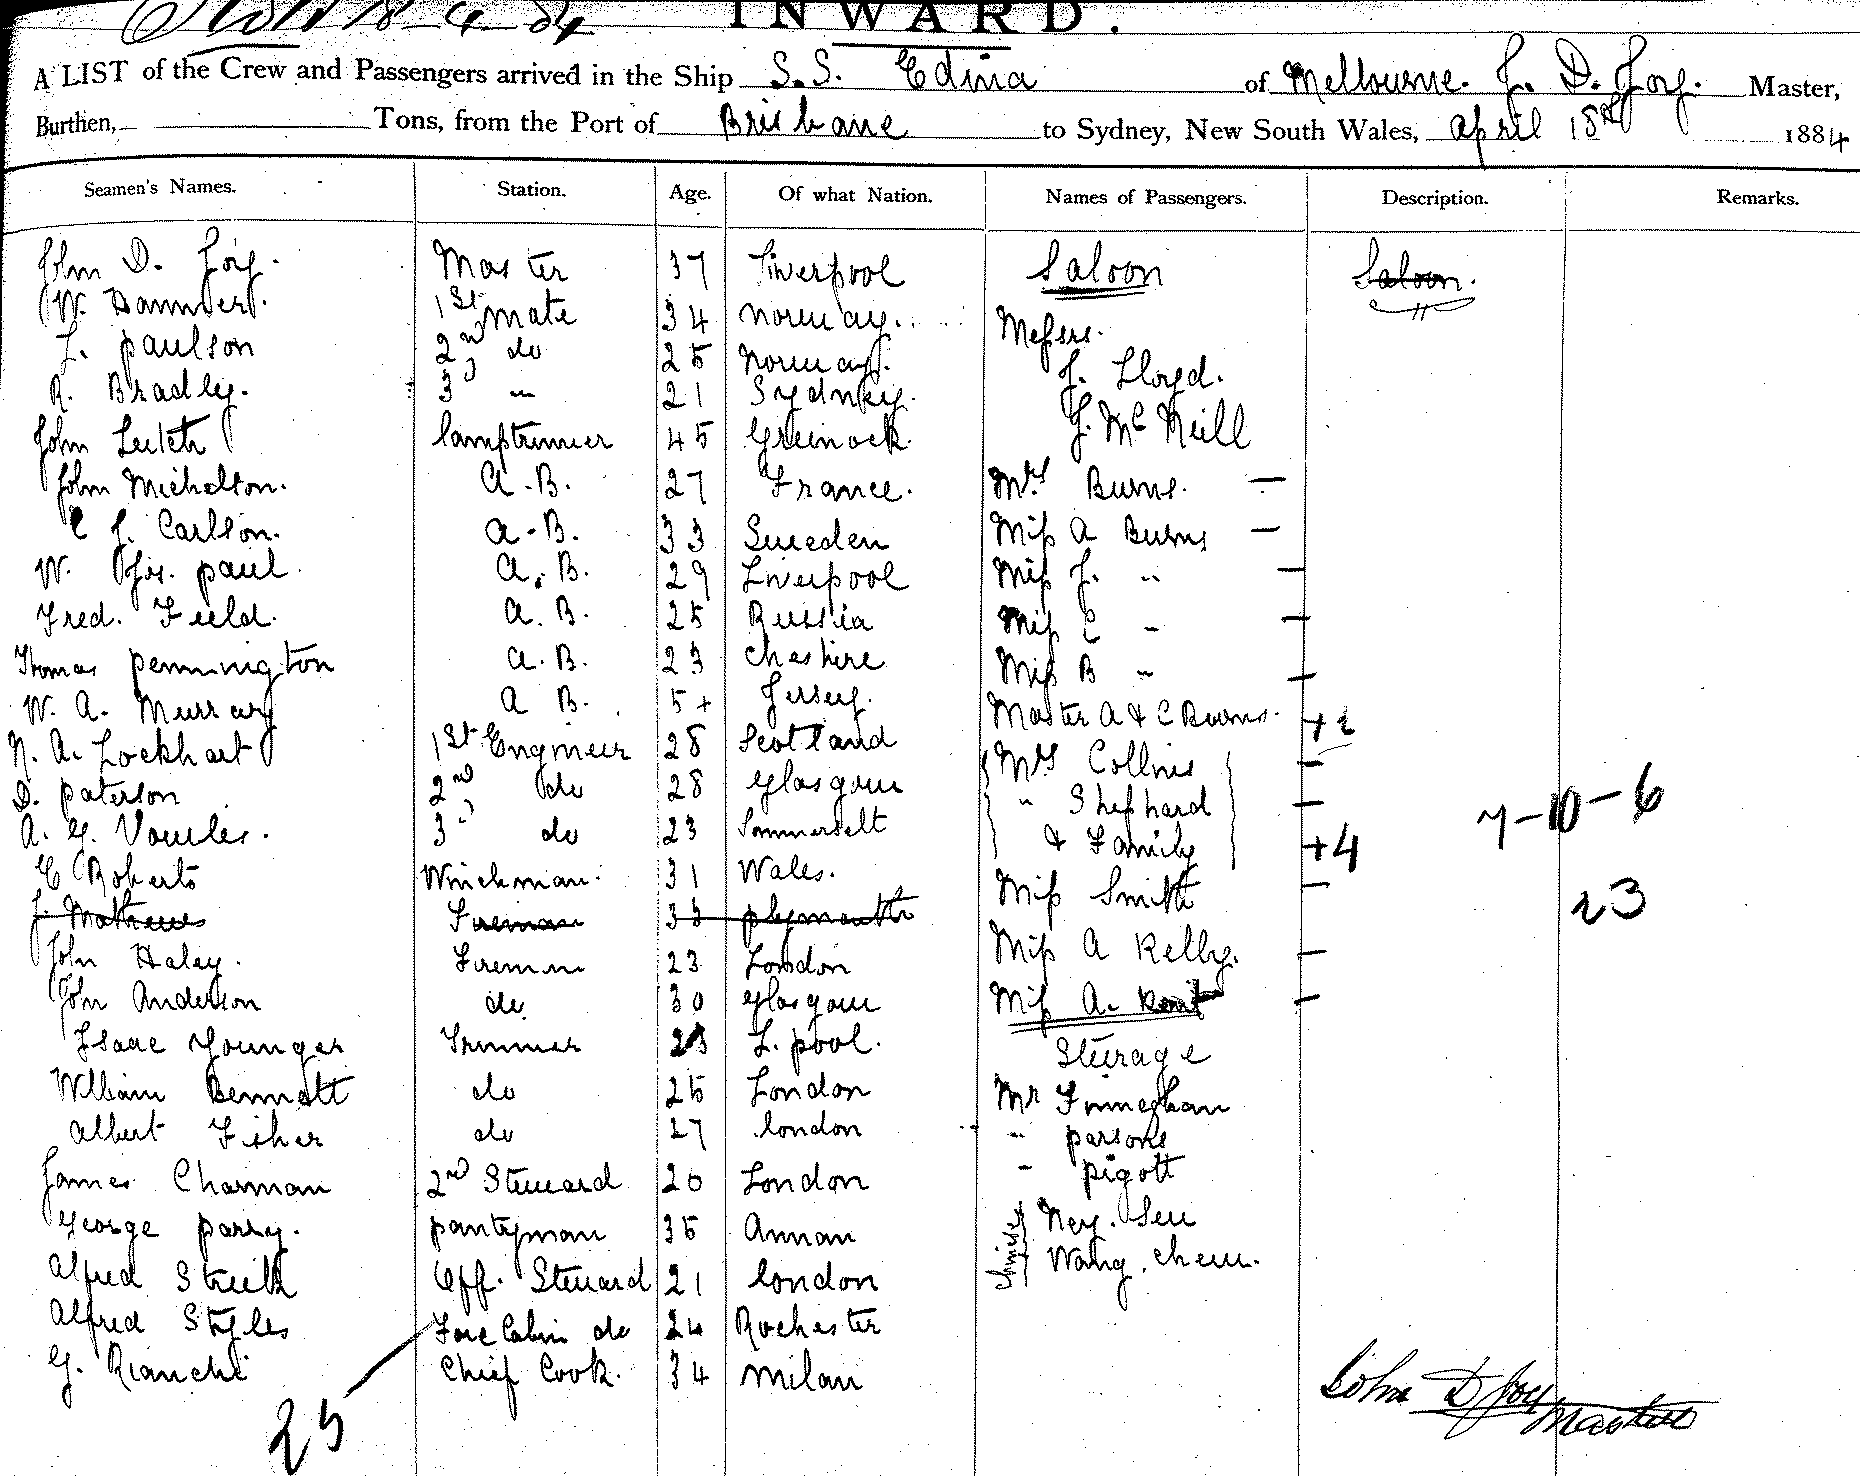 18-4-84 INWARD.
A LIST of the Crew and Passengers arrived in the Ship S.S. Edina of Melbourne. J. D. Joy. Master,
Burthen, Tons, from the Port of Brisbane to Sydney, New South Wales, April 18th 1884
Seamen's Names. Station. Age. Of what Nation. Names of Passengers. Description. Remarks.
John D. Joy. Master 37 Liverpool Saloon Saloon.
W. 1st Mate 34 Norway. Messrs.
J. Paulson 2nd do 25 Norway. J. Lloyd.
R. Bradley. 3 " 21 Sydney. J. McNeill
John Leitch lamptrimmer 45 Greenock
John Michelson. A.B. 27 France. Mrs Burns. —
C J. Carlson. A.B. 33 Sweden Miss A Burns —
W. Jos. Paul A.B. 29 Liverpool Miss J. " —
Fred. Field. A.B. 25 Russia Miss C " —
Thomas Pennington A.B. 23 Cheshire Miss B " —
W. A. Murray A B. 5+ Jersey. Master A & C Burns. + 2
N. A. Lockhart 1st Engineer 28 Scotland Mrs Collins —
D. Paterson 2nd do 28 Glasgow " Shephard — 7-10-6
A. G. Vowles. 3 do 23 Sommersett & Family +4
C Roberts Winchman. 31 Wales. Miss Smith — 23
J. Mathews Fireman 33 Plymouth
John Haley. Fireman 23 London Miss A Kelly. —
John Anderson do 30 Glasgow Miss A. Kent —
Isaac Younger Trimmer L. pool. Steerage
William Bennett do 25 London Mr Finneghan
Albert Fisher do 27 London " Parsons
James Charman 2nd Steward 20 London " Pigott
George Parry. Pantryman 35 Annan Chinese Ney. See
Alfred Off. Steward 21 London Wang. Chew.
Alfred Styles Fore Cabin do 24 Rochester
G. Bianchi Chief Cook. 34 Milan
25 John D Joy Master